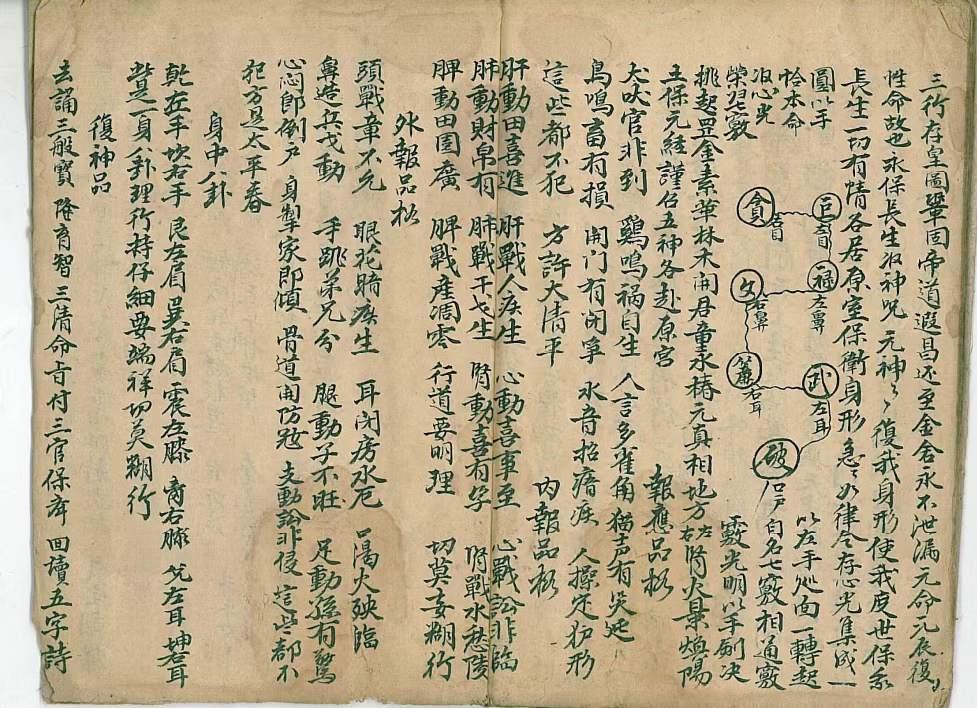 三行存皇圖鞏固帝道遐昌还至金舍永不泄漏元命元辰復
性命故也永保長生收神咒元神々復我身形使我度世保糸
長生一切有情各居原室保衛身形急々如律令存心光集成一
圓以手
恰本命
收心光
榮習七竅
以左手処面一轉起
口戶自名七竅相通竅
竅光明以手劍决
貪右目
巨左目
祿左鼻
文右鼻
簾右耳
武左耳
破
挑起罡金素華林木開君童永椿元真相地方左右腎火景煥陽
主保元經謹召五神各赴原宮
報應品格
犬吠官非到 鷄鳴禍自生 人言多雀角 猫声有災延
鳥鳴畜有損 開门有闭爭 水音招瘡疾 人擦定犯形
這些都不犯 方許大清平
内報品格
肝動田喜進 肝戰人疾生 心動喜事至 心戰訟非臨
肺動財帛有 肺戰干戈生 腎動喜有孕 腎戰水愁陵
脾動田園廣 脾戰產凋零 行道要明理 切莫妄糊行
外報品格
頭戰章不允 眼花暗疾生 耳闭房水厄 口渴火殃臨
鼻造兵戈動 手跳弟兄分 腿動子不旺 足動孫有驚
心悶郎倒戶 身掣家即傾 骨道開防殃 支動訟非侵 這些都不
犯方是太平春
身中八卦
乾左手坎右手 艮左肩巽右肩 震左膝 离右膝 兌左耳坤右耳
就是一身卦理行持仔細要端祥切莫糊行
復神品
去誦三般寳 降育智 三清命旨付三官保奔 回讀五字詩